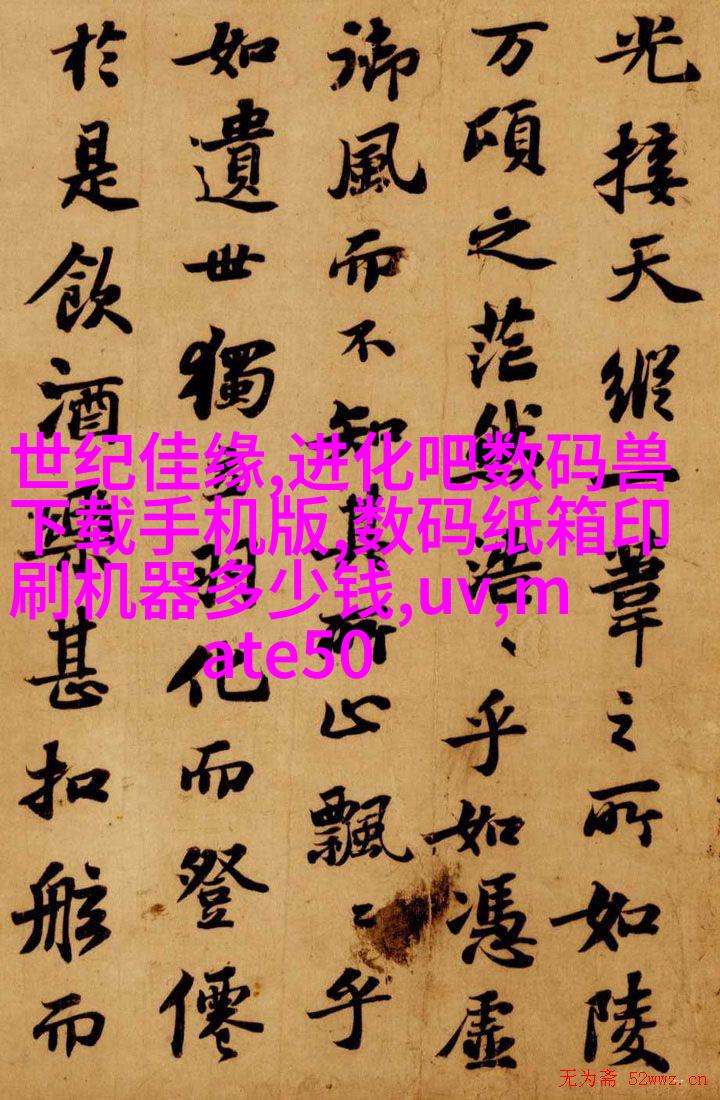 光接天縱一葦之所如陵
万頃之茫然浩〻乎如憑虛
御風而不知其所止飄〻乎
如遺世獨立羽化而登僊
於是飲酒樂甚扣舷而
世纪佳缘,进化吧数码兽
下载手机版,数码纸箱印
刷机器多少钱,uv,m
ate50
无为斋 52wwz.cn